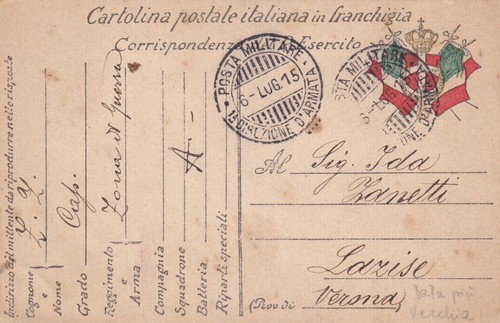 Cartolina postale italiana in franchigia
Corrispondenza Esercito
POSTA MILITARE
6-LUG.15
1a DIREZIONE D'ARMATA
STA MILITARE
6-LU
ONE D'ARMATA
Al Sig. Ida
Zanetti
Lazise
(Prov. di Verona)
Data più
vecchia
Indirizzo del mittente da riprodurre nelle risposte
Cognome e Z. L.
Nome
Grado Cap.
Reggimento Zona di Guerra
e
Arma
Compagnia
Squadrone A.
Batteria
Riparti speciali